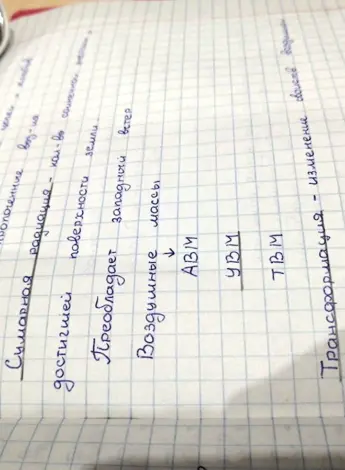 Сумарная радиация - кол-во солнечной
достигшей поверхности земли.
Преобладает западный ветер
Воздушные массы
↓
АВМ
УВМ
ТВМ
Трансформация - изменение свойств воздушных